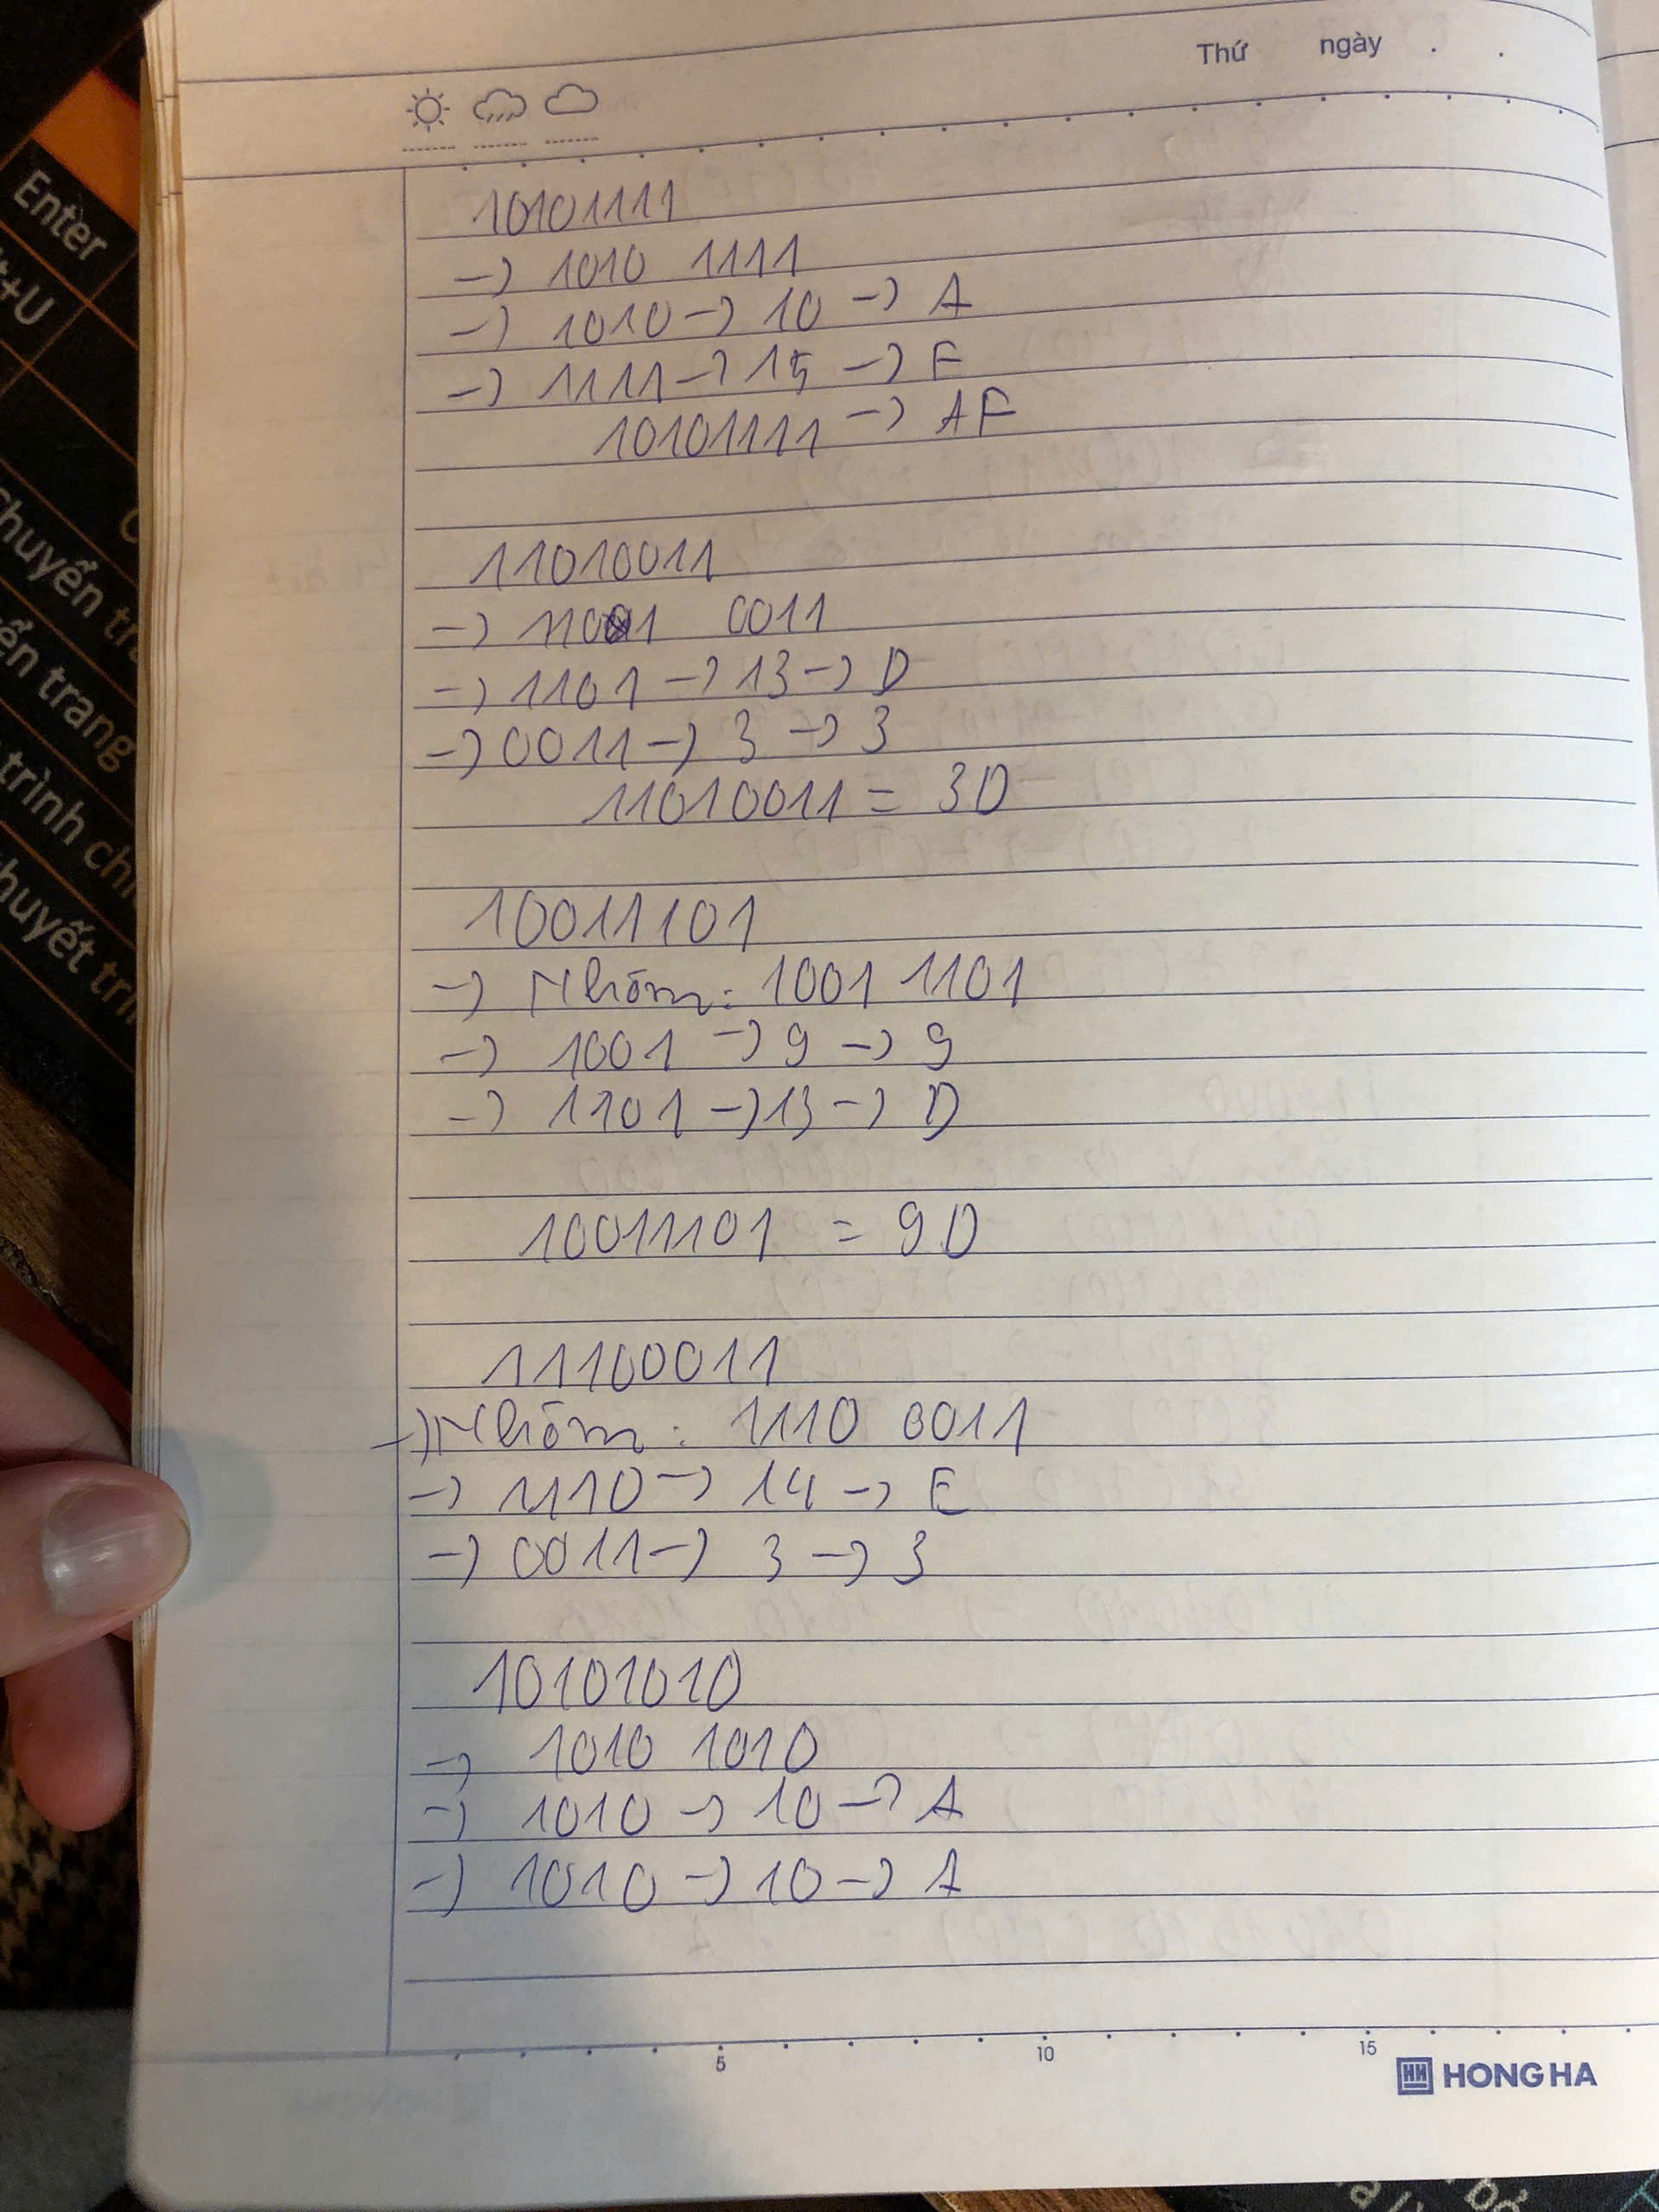 Thứ ngày . .
Enter
t+U
huyển tr
ển trang
trình chi
huyết trì
10101111
-> 1010 1111
-> 1010 -> 10 -> A
-> 1111 -> 15 -> F
10101111 -> AF
11010011
-> 1101 0011
-> 1101 -> 13 -> D
-> 0011 -> 3 -> 3
11010011 = 3D
10011101
-> Nhóm: 1001 1101
-> 1001 -> 9 -> 9
-> 1101 -> 13 -> D
10011101 = 9D
11100011
-> Nhóm: 1110 0011
-> 1110 -> 14 -> E
-> 0011 -> 3 -> 3
10101010
-> 1010 1010
-> 1010 -> 10 -> A
-> 1010 -> 10 -> A
5 10 15
HONG HA